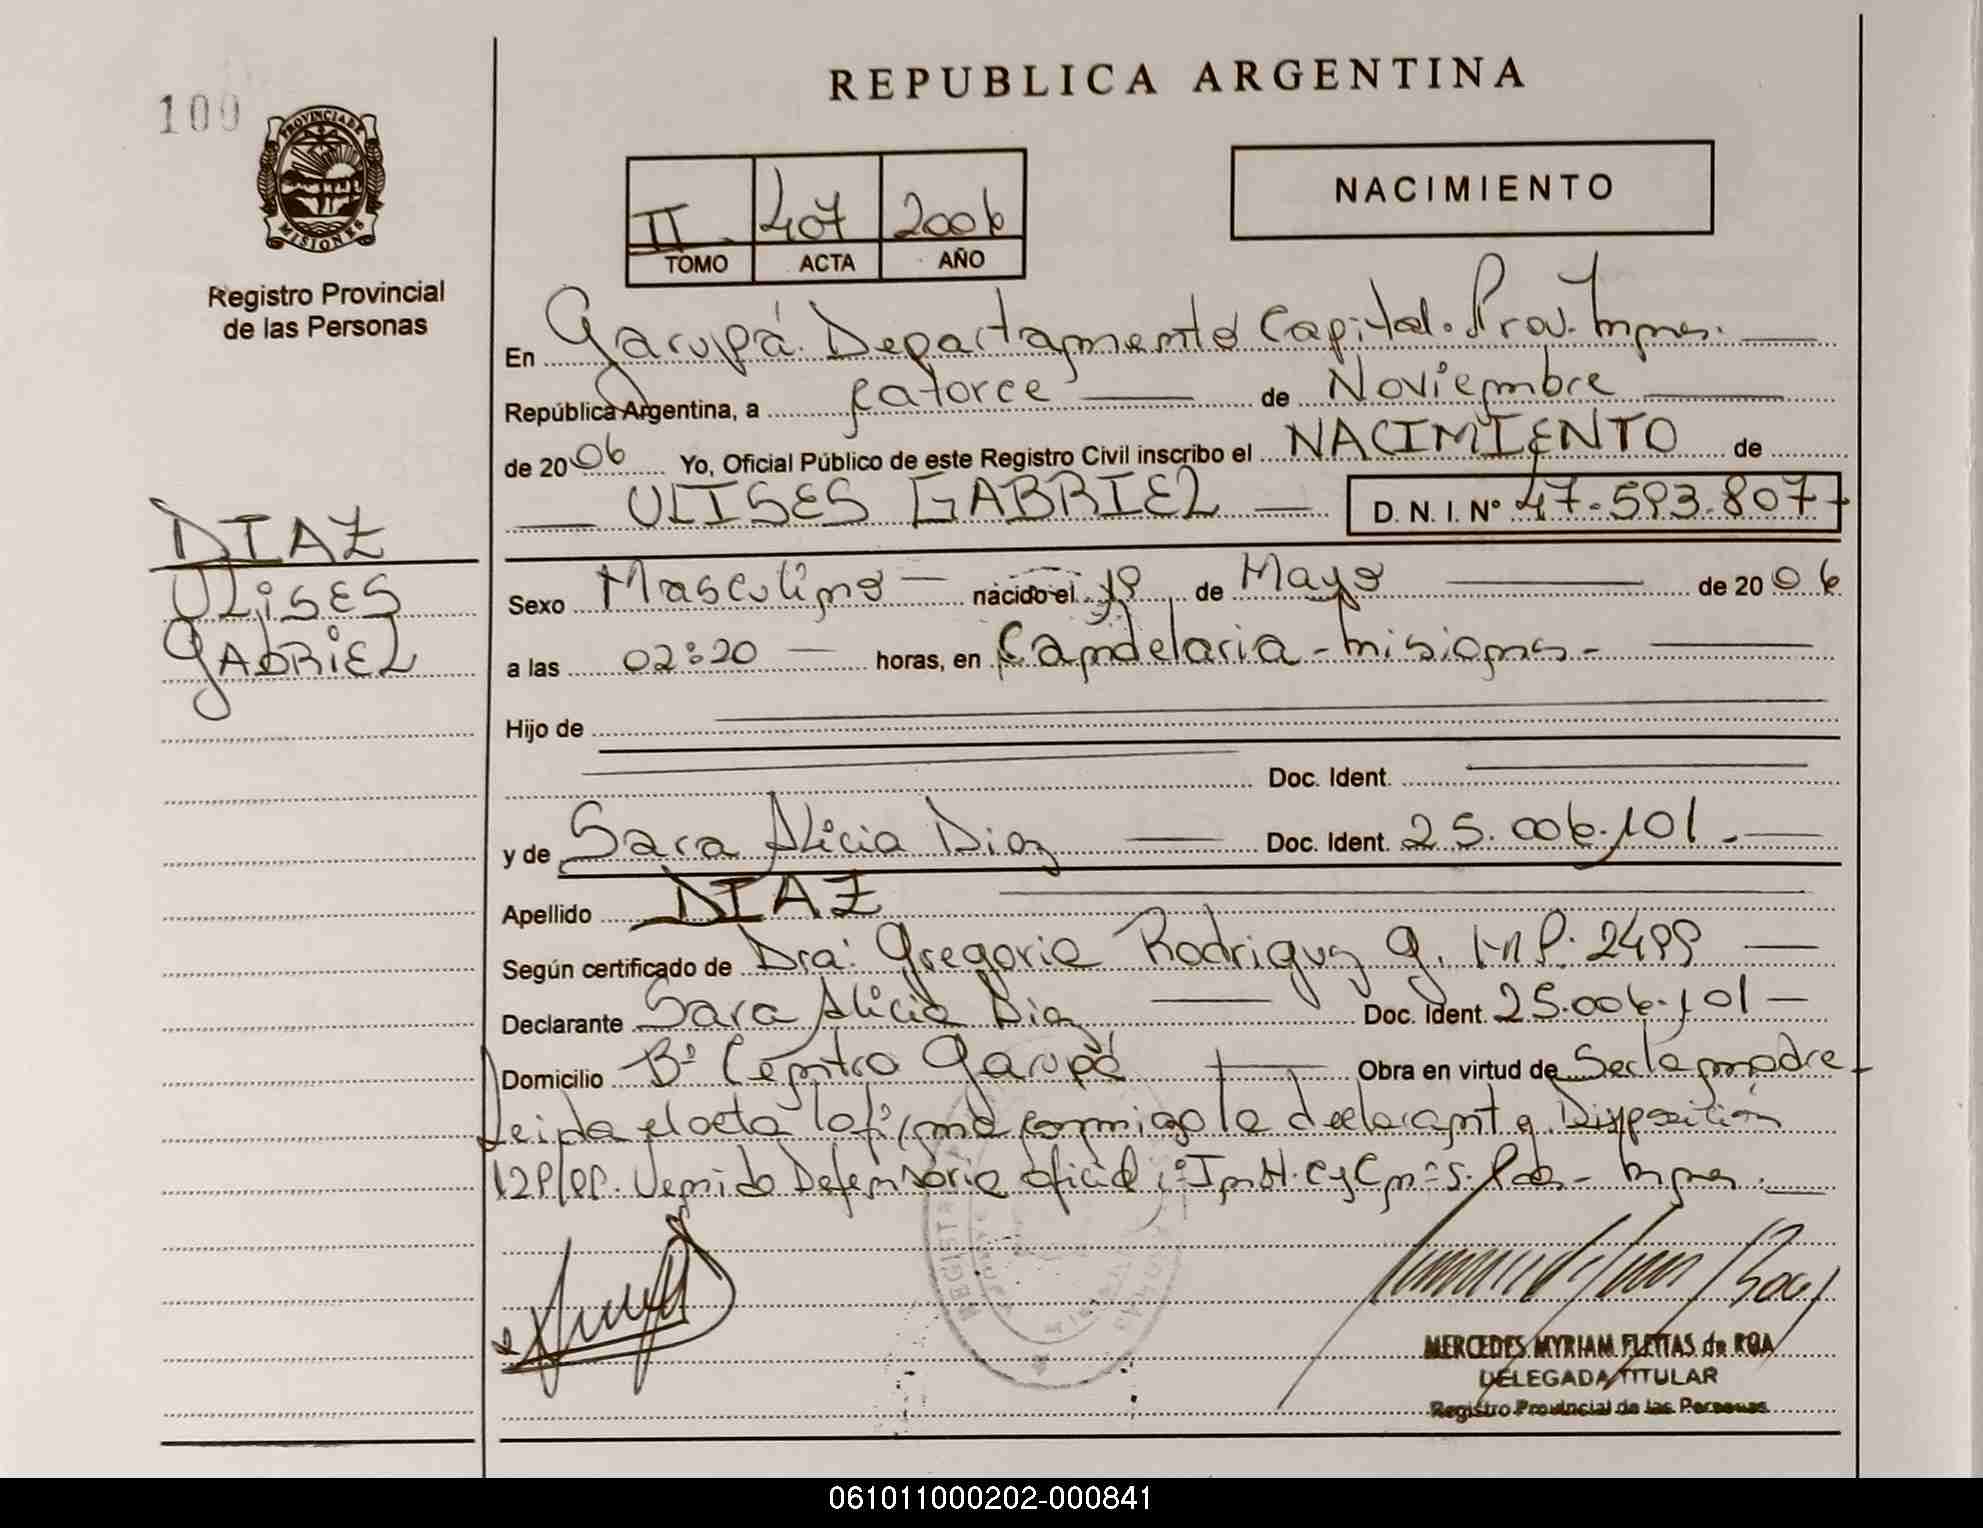 REPUBLICA ARGENTINA
100
PROVINCIA DE
MISIONES
Registro Provincial
de las Personas
II 407 2006
TOMO ACTA AÑO
NACIMIENTO
En Garupá. Departamento Capital. Prov. Mnes.
República Argentina, a catorce de Noviembre
de 2006 Yo, Oficial Público de este Registro Civil inscribo el NACIMIENTO de
ULISES GABRIEL D. N. I. Nº 47.593.807
DIAZ
ULISES
GABRIEL
Sexo Masculino nacido el de Mayo de 2006
a las 02:20 horas, en Candelaria - Misiones -
Hijo de
Doc. Ident.
y de Sara Alicia Diaz Doc. Ident. 25.006.101.-
Apellido DIAZ
Según certificado de Dra: Gregoria Rodriguez G. M.P. 2499
Declarante Sara Alicia Diaz Doc. Ident. 25.006.101 -
Domicilio Bº Centro Garupá Obra en virtud de Ser la madre
Leida el acta la firma conmigo la declarante. Disposición
Defensoria oficial Mnes.
MERCEDES MYRIAM FLEITAS de ROA
DELEGADA TITULAR
Registro Provincial de las Personas
061011000202-000841